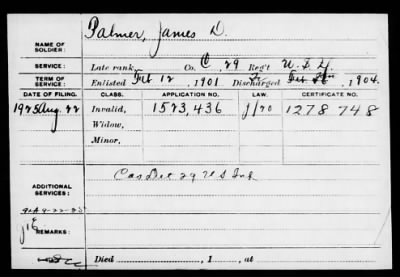 Palmer, James D.
NAME OF SOLDIER:
SERVICE: Late rank, Co. C, 29 Reg't U.S.
TERM OF SERVICE: Enlisted Feb 12, 1901 Discharged 1904.
DATE OF FILING. CLASS. APPLICATION NO. LAW. CERTIFICATE NO.
1925 Aug. 22 Invalid, 1523,436 1278748
Widow,
Minor,
ADDITIONAL SERVICES: Cas Det 29 U S Inf
REMARKS:
Died , 1 , at